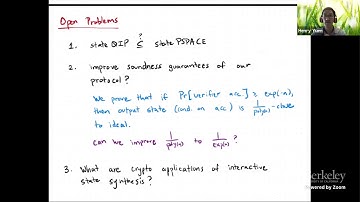 Open Problems
1. state QIP ⊆? state PSPACE
2. improve soundness guarantees of our
protocol?
We prove that if Pr[verifier acc] ≥ exp(-n),
then output state (cond. on acc) is 1/poly(n)-close
to ideal.
can we improve 1/poly(n) to 1/exp(n)?
3. What are crypto applications of interactive
state synthesis?
Henry Yuen
Berkeley
Powered by Zoom